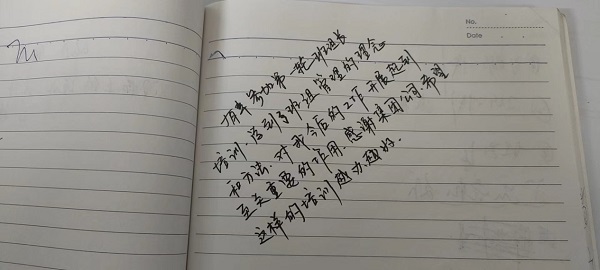 No.
Date
有幸参加第一轮班组长
培训,学到了班组管理的理念
和方法.对我今后的工作开展起到
至关重要的作用.感谢集团公司.希望
这样的培训越办越好.